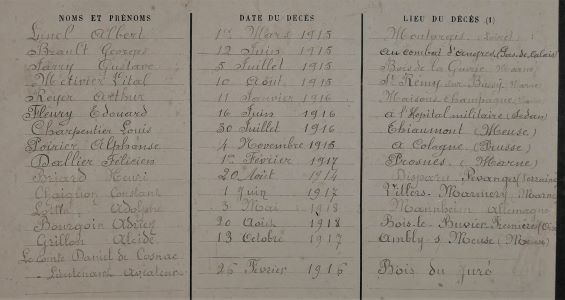 NOMS ET PRÉNOMS DATE DU DÉCÈS LIEU DU DÉCÈS (1)
Albert 1er Mars 1915 Montargis (Loiret)
Brault Georges 12 Juin 1915 au combat d'Angres (Pas de Calais)
Jarry Gustave 5 Juillet 1915 Bois de la Gurie Marne
Métivier Vital 10 Août 1915 St Rémy sur Bussy Marne
Royer Arthur 11 Janvier 1916 Maisons champagne
Fleury Edouard 16 Juin 1916 à l'Hôpital militaire (Sedan)
Charpentier Louis 30 Juillet 1916 Thiaumont (Meuse)
Poirier Alphonse 4 Novembre 1915 à Cologne (Prusse)
Dallier Félicien 1er Février 1917 Prosnes (Marne)
Briard Henri 20 Août 1914 Disparu Pévanges (Lorraine
Chaignon Constant 1 Juin 1917 Villers-Marmery Marne
Adolphe 3 Mai 1918 Mannheim Allemagne
Bourgoin Adrien 20 Août 1918 Bois-le
Grillon Alcide 13 Octobre 1917 Ambly s Meuse (Meuse)
Le Comte Daniel de Cosnac
Lieutenant Aviateur 26 Février 1916 Bois du Juré